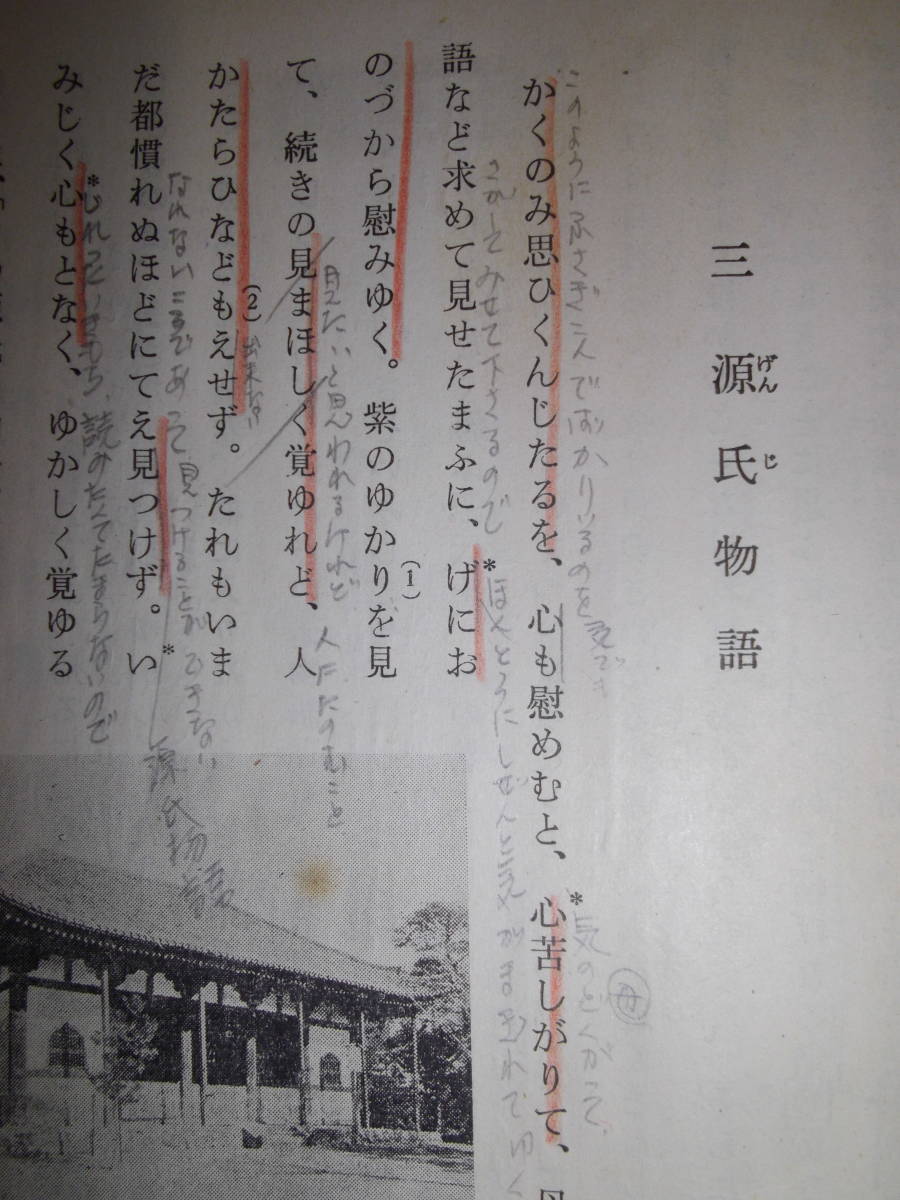 三 源氏物語
げん じ
このようにふさぎこんでばかりいるのを
*気のどくがって、
母
かくのみ思ひくんじたるを、心も慰めむと、心苦しがりて、
さがしてみせて下さるので
*ほんとうにしぜんと気がまぎれてゆく
語など求めて見せたまふに、げにお
のづから慰みゆく。紫のゆかりを見
(1)
見たいと思われるけれど 人にたのむこと
て、続きの見まほしく覚ゆれど、人
(2)
出来ない
かたらひなどもえせず。たれもいま
なれないころであって 見つけることができない
だ都慣れぬほどにてえ見つけず。い
*
源氏物語
*じれったいきもち、読みたくてたまらないので
みじく心もとなく、ゆかしく覚ゆる